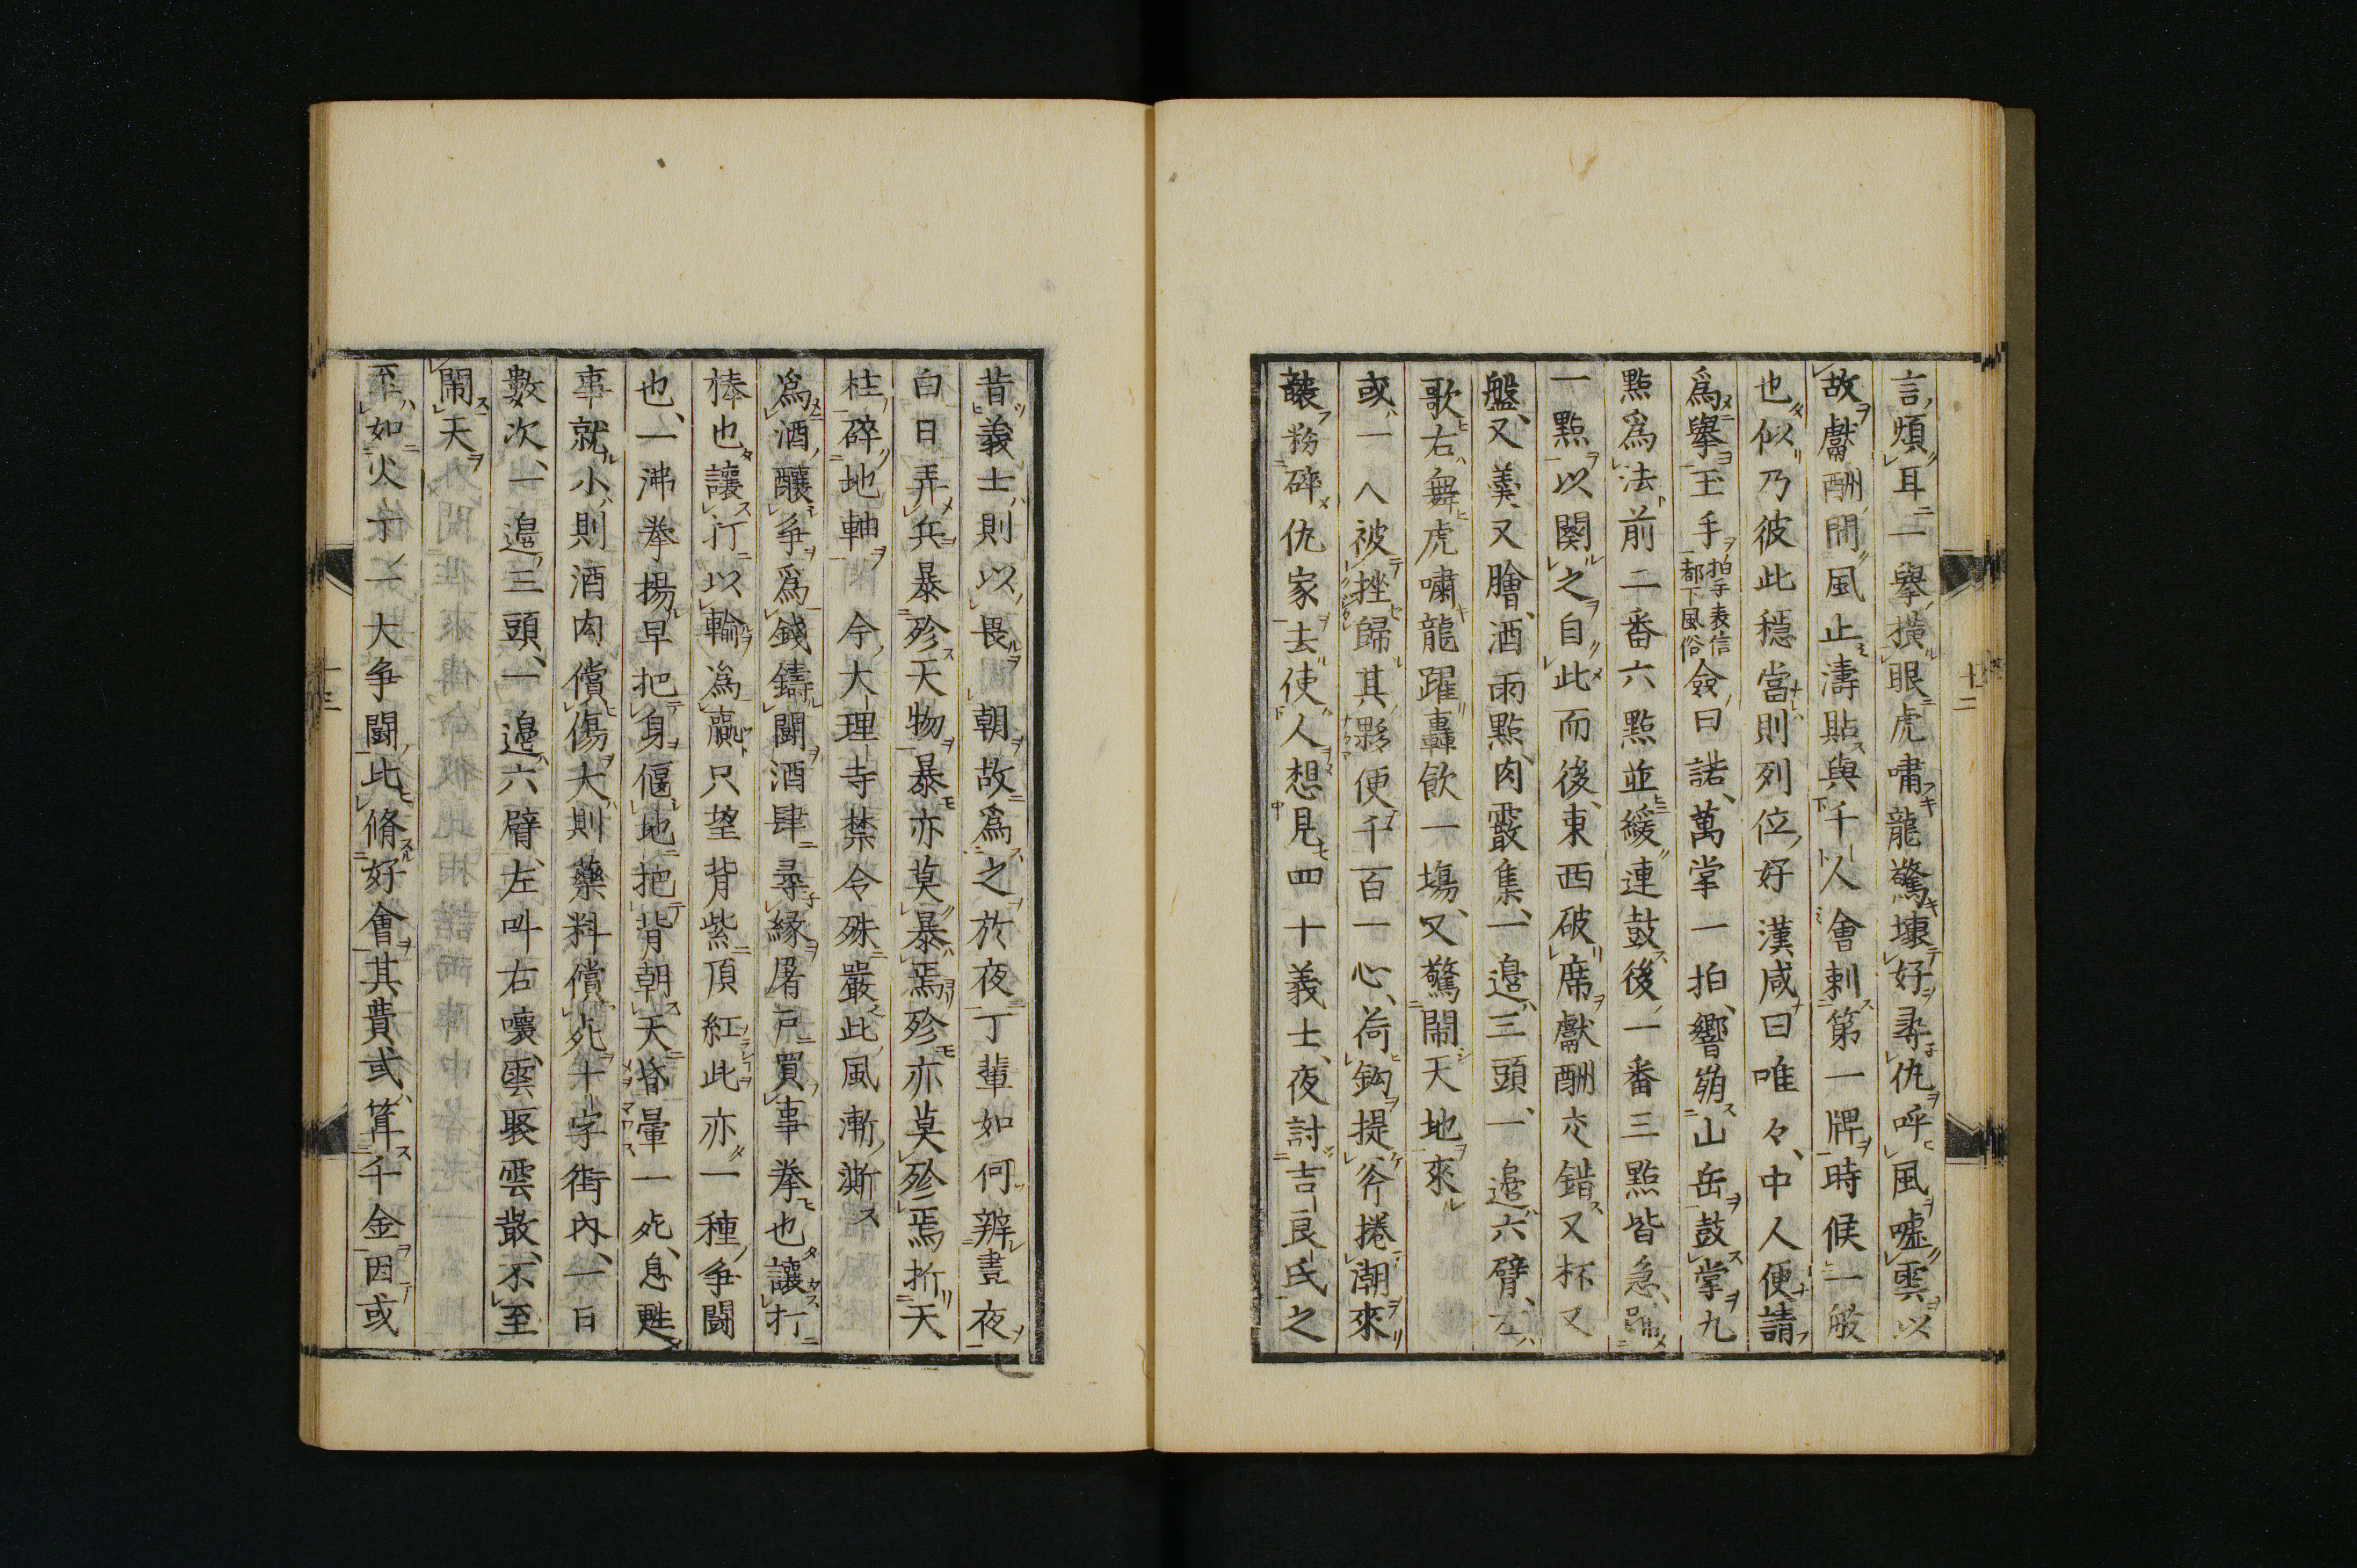 言煩耳一擧橫眼虎嘯龍驚壊好尋仇呼風嘘雲以
故獻酬間風止濤貼與千人會刺第一牌時候一般
也似乃彼此穩當則列位好漢咸曰唯々、中人便請
爲擧玉手拍手表信都下風俗僉曰諾、萬掌一拍、響崩山岳鼓掌九
點爲法前二番六點並緩連鼓後一番三點皆急
一點以関之自此而後、東西破席獻酬交錯又杯又
盤、又羹又膾、酒雨點、肉霰集、一邉三頭、一邉六臂、左
歌右舞虎嘯龍躍轟飲一塲、又驚閙天地來
或一人被挫歸其夥便千百一心、荷鈎提斧捲潮來
務碎仇家去使人想見四十義士、夜討吉良氏之
昔義士則以畏朝故爲之於夜丁輩如何辨晝夜
白日弄兵暴殄天物暴亦莫暴焉殄亦莫殄焉折天
柱碎地軸今大理寺禁令殊嚴此風漸澌
爲酒釀爭爲錢鑄鬪酒肆尋縁屠戸買事拳也讓打
棒也讓打以輸爲贏只望背紫頂紅此亦一種爭鬪
也、一沸拳揚早把身偃地把背朝天昏暈一死、息甦
事就小則酒肉償傷大則藥料償死十字街内、一日
數次、一邉三頭、一邉六臂、左叫右嚷、雲聚雲散、不至
閙天
至如火丁一大争闘此脩好會其費或算千金因或
十二
十三